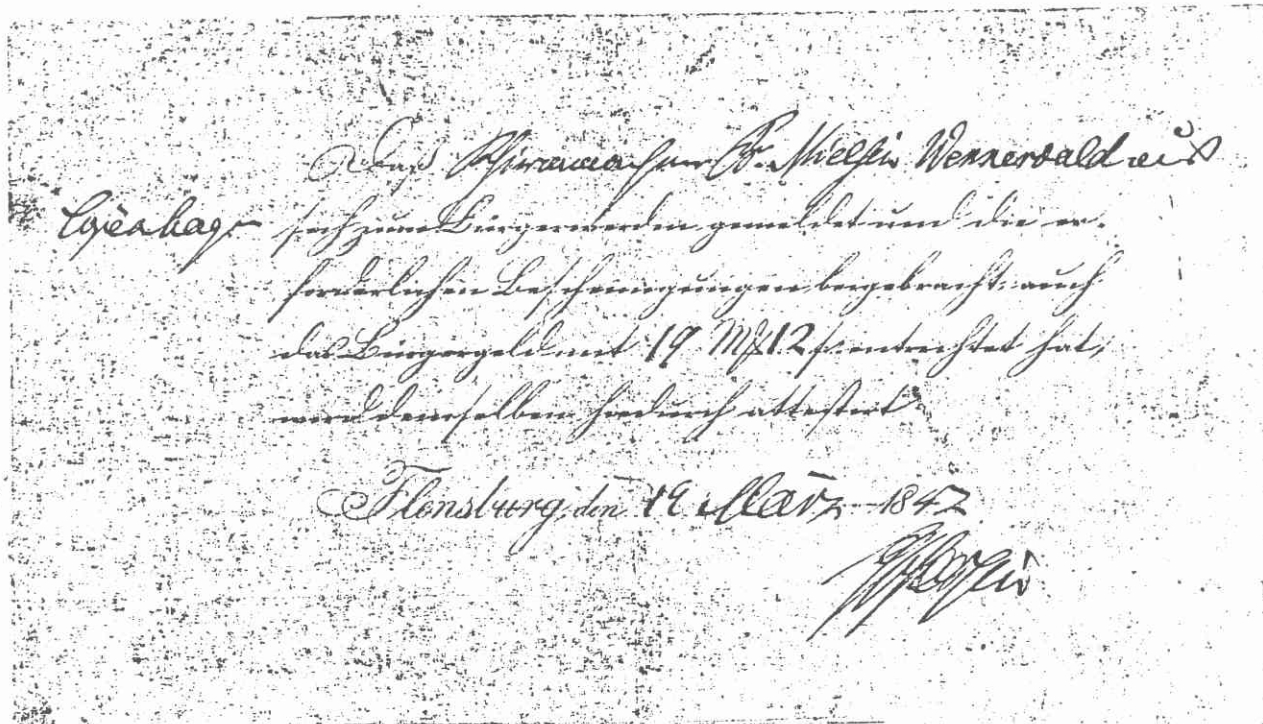 Daß Schirmmacher P. Nielsen Wennerwald aus
Copenhagen sich zum Bürgerwerden gemeldet und die er-
forderlichen Bescheinigungen beygebracht, auch
das Bürgergeld mit 19 M/ 12 ß entrichtet hat,
wird demselben hiedurch attestirt.
Flensburg, den 19 März 1847